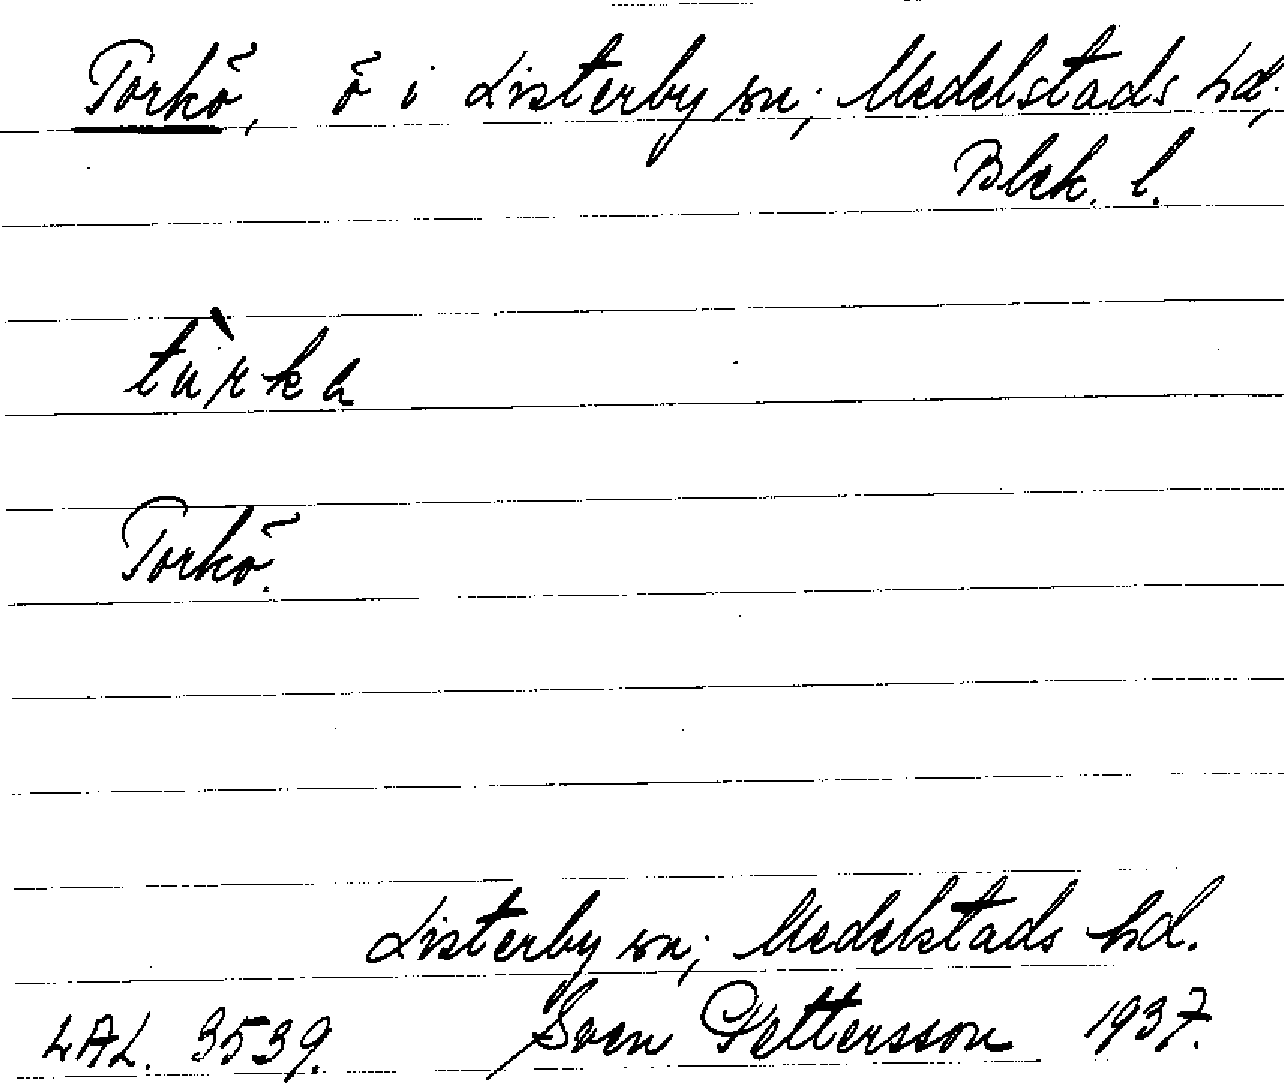 Torkö, ö i Listerby sn; Medelstads hd;
Blek. l.
tùrka
Torkö.
Listerby sn; Medelstads hd.
LAL. 3539. Sven Pettersson 1937.